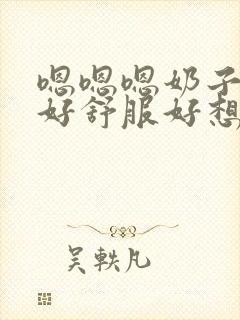 嗯嗯嗯奶子
好舒服好想
吴轶凡